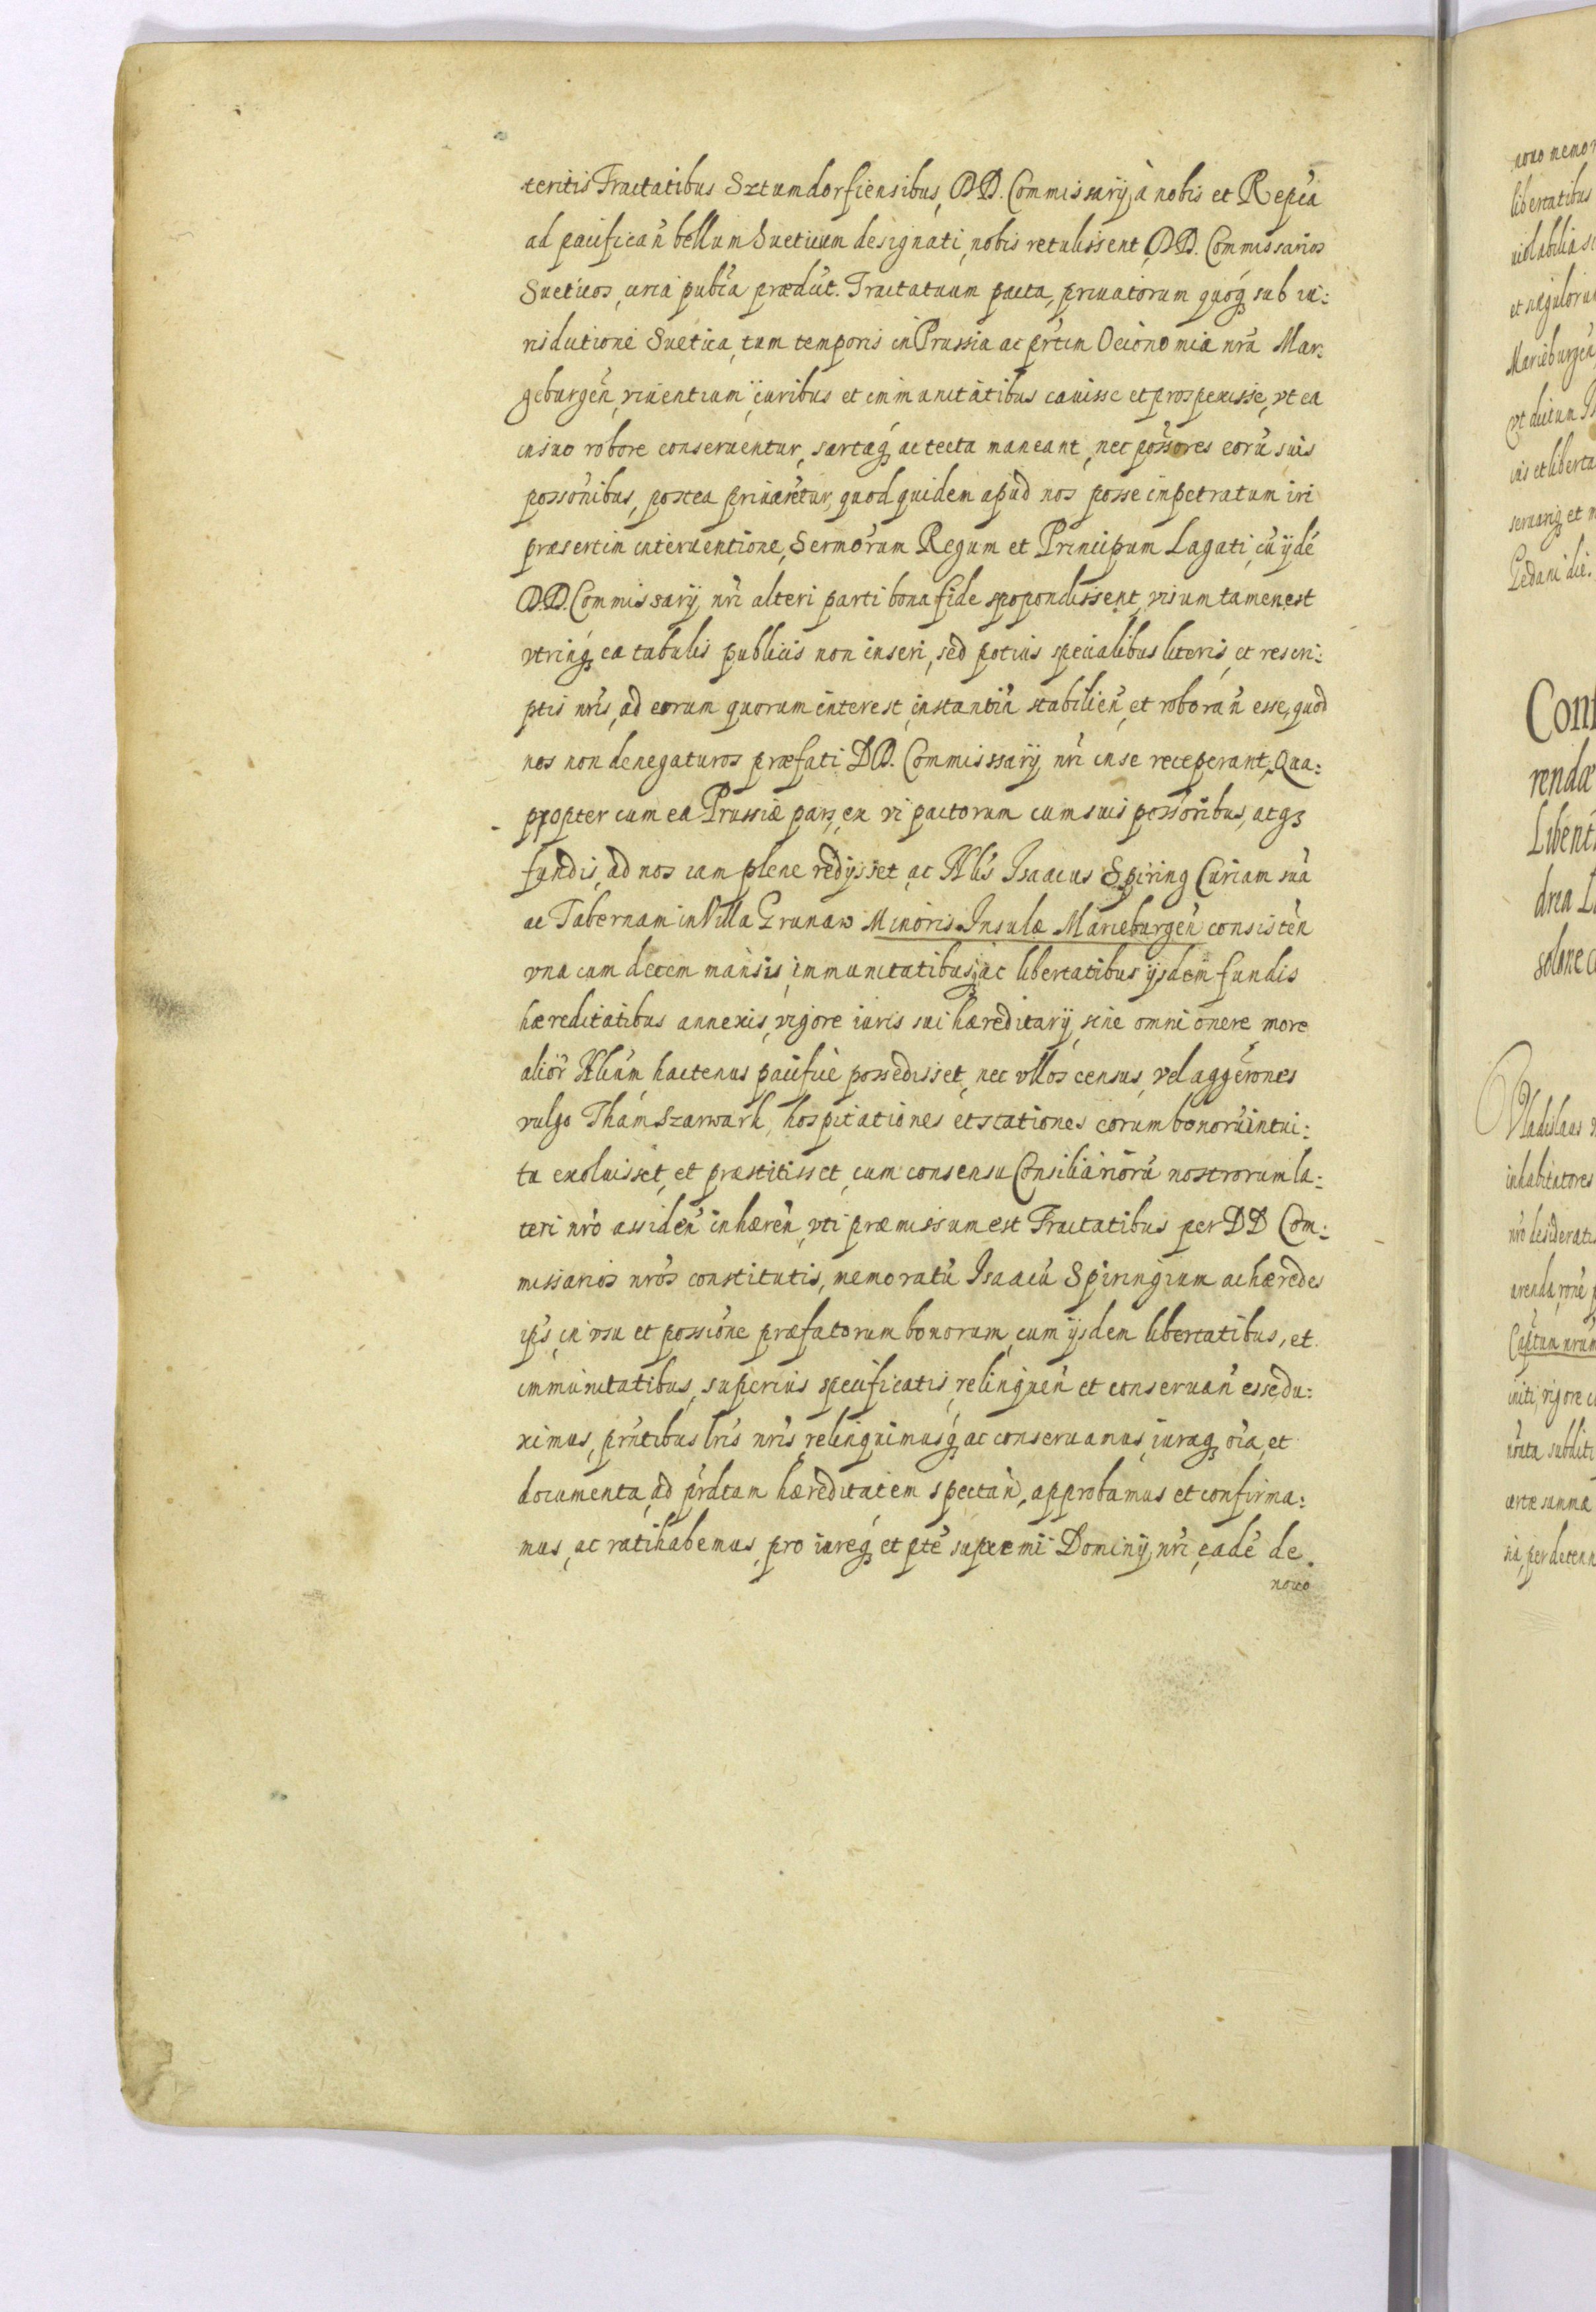 teritis Tractatibus Sztumdorfiensibus, DD. Commissarÿ, à nobis et Repcã
ad pacificañ bellum Sueticum designati, nobis retulissent, DD. Commissarios
Sueticos, circa pubca prædict. Tractatuum pacta, priuatorum quoq́ʒ sub iu:
risdictione Suetica, tum temporis in Prussia ac prtim Oeconomia nrã Mar:
geburgeñ, viuentium, iuribus et immunitatibus cauisse et prospexisse, vt ea
in suo robore conseruentur, sartaq́ʒ ac tecta maneant, nec possores eorũ suis
possonibus, postea priuarẽtur, quod quidem apud nos posse impetratum iri
præsertim interuentione, Sermorum Regum et Principum Lagati, cũ ÿdẽ
DD. Commissarÿ nrĩ alteri parti bona fide spopondissent, visum tamen est
vtrinq́ʒ ea tabulis publicis non inseri, sed potius specialibus literis, et rescri:
ptis nrĩs, ad eorum quorum interest, instantiã stabilieñ, et roborañ esse, quod
nos non denegaturos præfati DD. Commissarÿ nrĩ in se receperant, Qua:
propter cum ea Prussiæ pars, ex vi pactorum cum suis possoribus, atqʒ
fundis, ad nos iam plene redÿsset, ac Nlis Isaacus Spiring Curiam suã
ac Tabernam in Villa Grunaw Minoris Insulæ Marieburgeñ consisteñ
vna cum decem mansis, immunitatibusqʒ ac libertatibus ÿsdem fundis
hæreditatibus annexis, vigore iuris sui hæreditarÿ, sine omni onere, more
aliõr Nlium, hactenus pacificè possedisset, nec vllos census, vel aggerones
vulgo Tham Szarwark, hospitationes et stationes eorum bonorũ intui:
tu exoluisset, et præstitisset, cum consensu Consiliariorũ nostrorum la:
teri nrõ assideñ inhæreñ, vti præmissum est Tractatibus per DD Com:
missarios nrõs constitutis, memoratũ Isaacũ Spiringium ac hæredes
ips, in vsu et possione præfatorum bonorum, cum ÿsdem libertatibus, et
immunitatibus, superius specificatis, relinqueñ et conseruañ esse du:
ximus, prñtibus lrĩs nrĩs, relinquimusq́ʒ ac conseruamus, iuraq́ʒ oĩa, et
documenta, ad prdtam hæreditatem spectañ, approbamus et confirma:
mus, ac ratihabemus, pro iureq́ʒ et ptẽ supremi Dominÿ nrĩ, eadẽ de
nouo